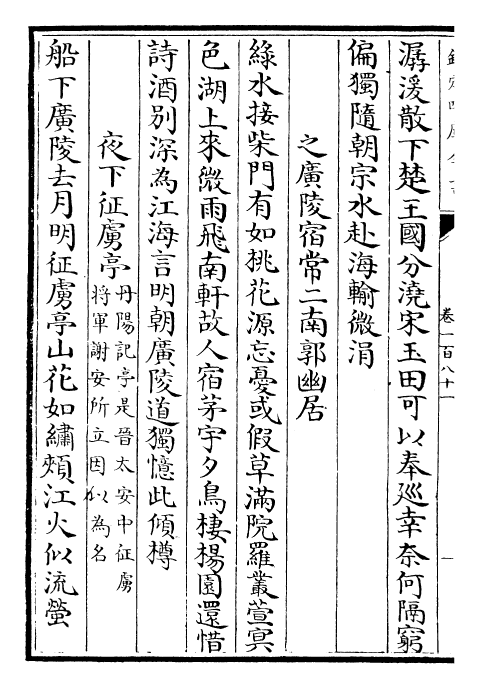 潺湲散下楚王國分澆宋玉田可以奉廵幸奈何隔窮
偏獨隨朝宗水赴海輸微涓
之廣陵宿常二南郭幽居
綠水接柴門有如桃花源忘憂或假草滿院羅叢萱冥
色湖上來微雨飛南軒故人宿茅宇夕鳥棲楊園還惜
詩酒别深為江海言明朝廣陵道獨憶此傾樽
夜下征虜亭
丹陽記亭是晉太安中征虜
將軍謝安所立因以為名
船下廣陵去月明征虜亭山花如繡頰江火似流螢
卷一百八十一